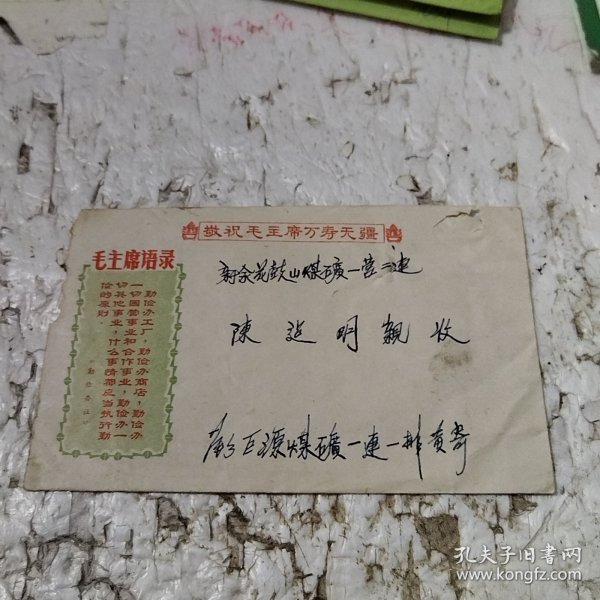 敬祝毛主席万寿无疆
毛主席语录
勤俭办工厂，勤俭办商店，勤俭办
一切国营事业和合作事业，勤俭办一
切其他事业，什么事情都应当执行勤
俭的原则
勤俭办社
新余花鼓山煤矿一营二连
陳 延 明 親 收
巨源煤礦一連一排黄寄
孔夫子旧书网
www.kongfz.com